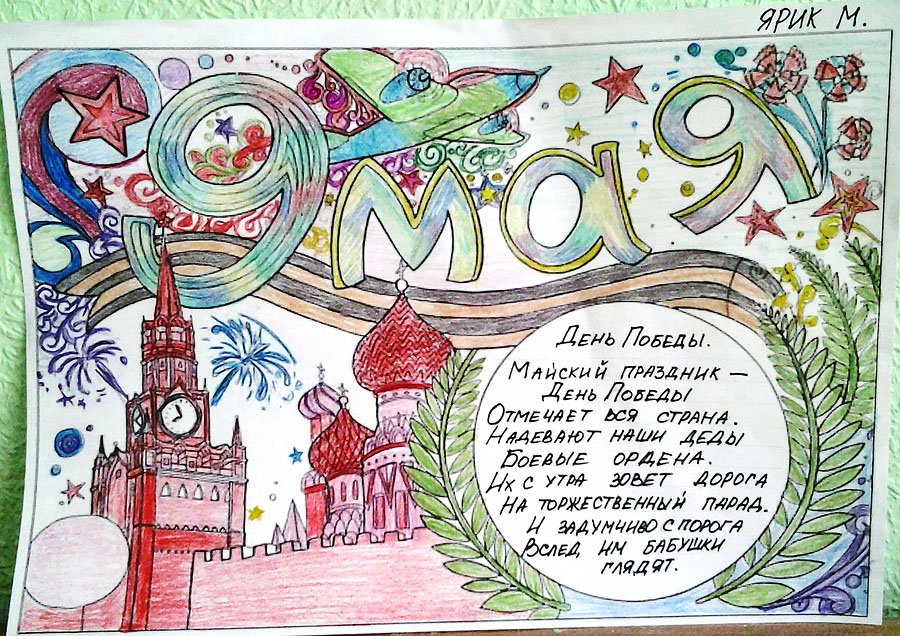 ЯРИК М.
9 мая
День Победы.
Майский праздник —
День Победы
Отмечает вся страна.
Надевают наши деды
Боевые ордена.
Их с утра зовет дорога
На торжественный парад.
И задумчиво с порога
Вслед им бабушки
глядят.